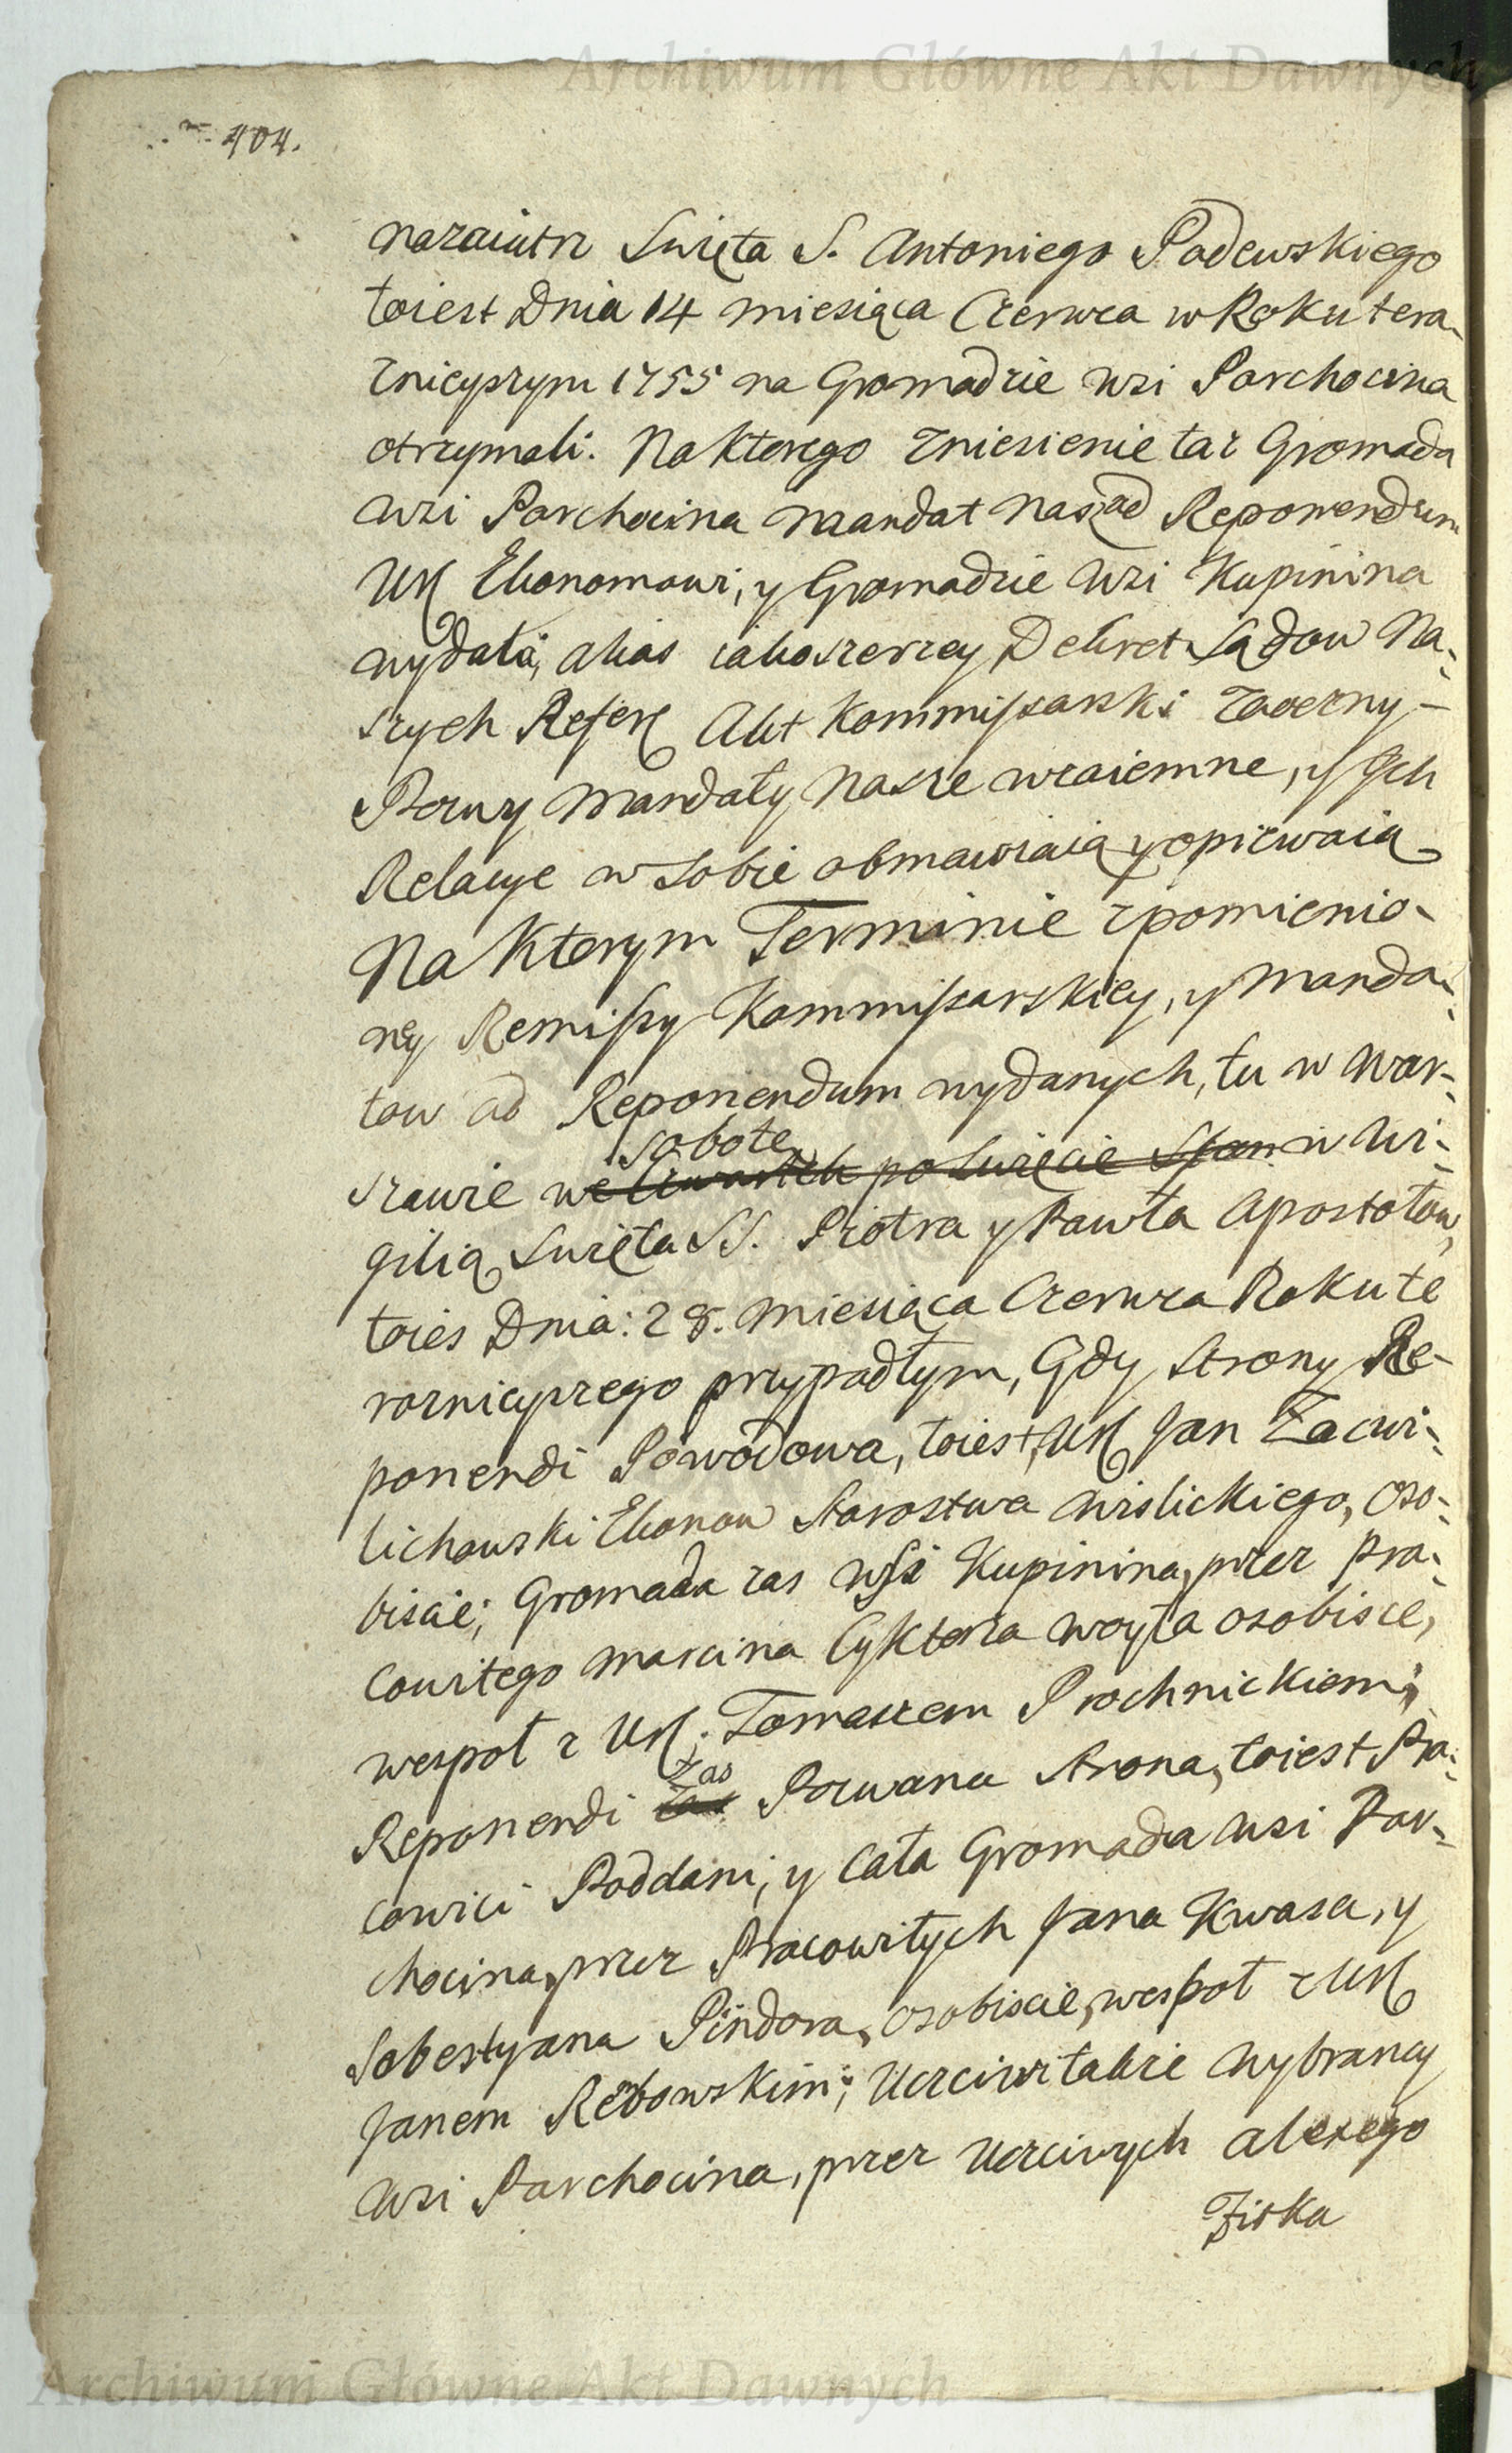 Archiwum Główne Akt Dawnych
404.
nazaiutrz Swięta S. Antoniego Padewskiego
toiest Dnia 14 miesiąca Czerwca w Roku tera-
znieyszym 1755 na Gromadzie wsi Parchocina
otrzymali. Na ktorego zniesienie taz Gromada
wsi Parchocina mandat nasz ad Reponendum
Ur Ekonomowi, y Gromadzie wsi Kupinina
wydała, alias iako szerzey Dekret Sądow Na-
szych Refer Akt Kommissarski Zaoczny
Pozwy Mandaty Nasze wzaiemne, y Ich
Relacye w Sobie obmawiaią y opiewaią
Na Ktorym Terminie z pomienio-
ney Remissy Kommissarskiey, y Manda-
tow ad Reponendum wydanych, tu w War-
Sobotę
szawie we Czwartek po Swięcie w Wi-
gilią Swięta SS. Piotra y Pawła Apostołow,
toies Dnia: 28. Miesiąca Czerwca Roku te
raznieyszego przypadłym, Gdy Strony Re-
ponendi Powodowa, toiest, Ur Jan Zacwi-
lichowski Ekonom Starostwa Wislickiego, Oso-
biscie; Gromada zas wsi Kupinina, przez Pra-
cowitego Marcina Cyktora woyta osobisce,
wespoł z Ur: Tomaszem Prochnickiem;
Zas
Reponendi Zas Pozwana Strona, toiest Pra-
cowici Poddani, y Cała Gromada wsi Par-
chocina, przez Pracowitych Jana Kwasa, y
Sobestyana Pindora, osobiscie, wespoł z Ur
Janem Rębowskim; Uczciwi takze Wybrancy
wsi Parchocina, przez Uczciwych Alexego
Ziska
Archiwum Główne Akt Dawnych